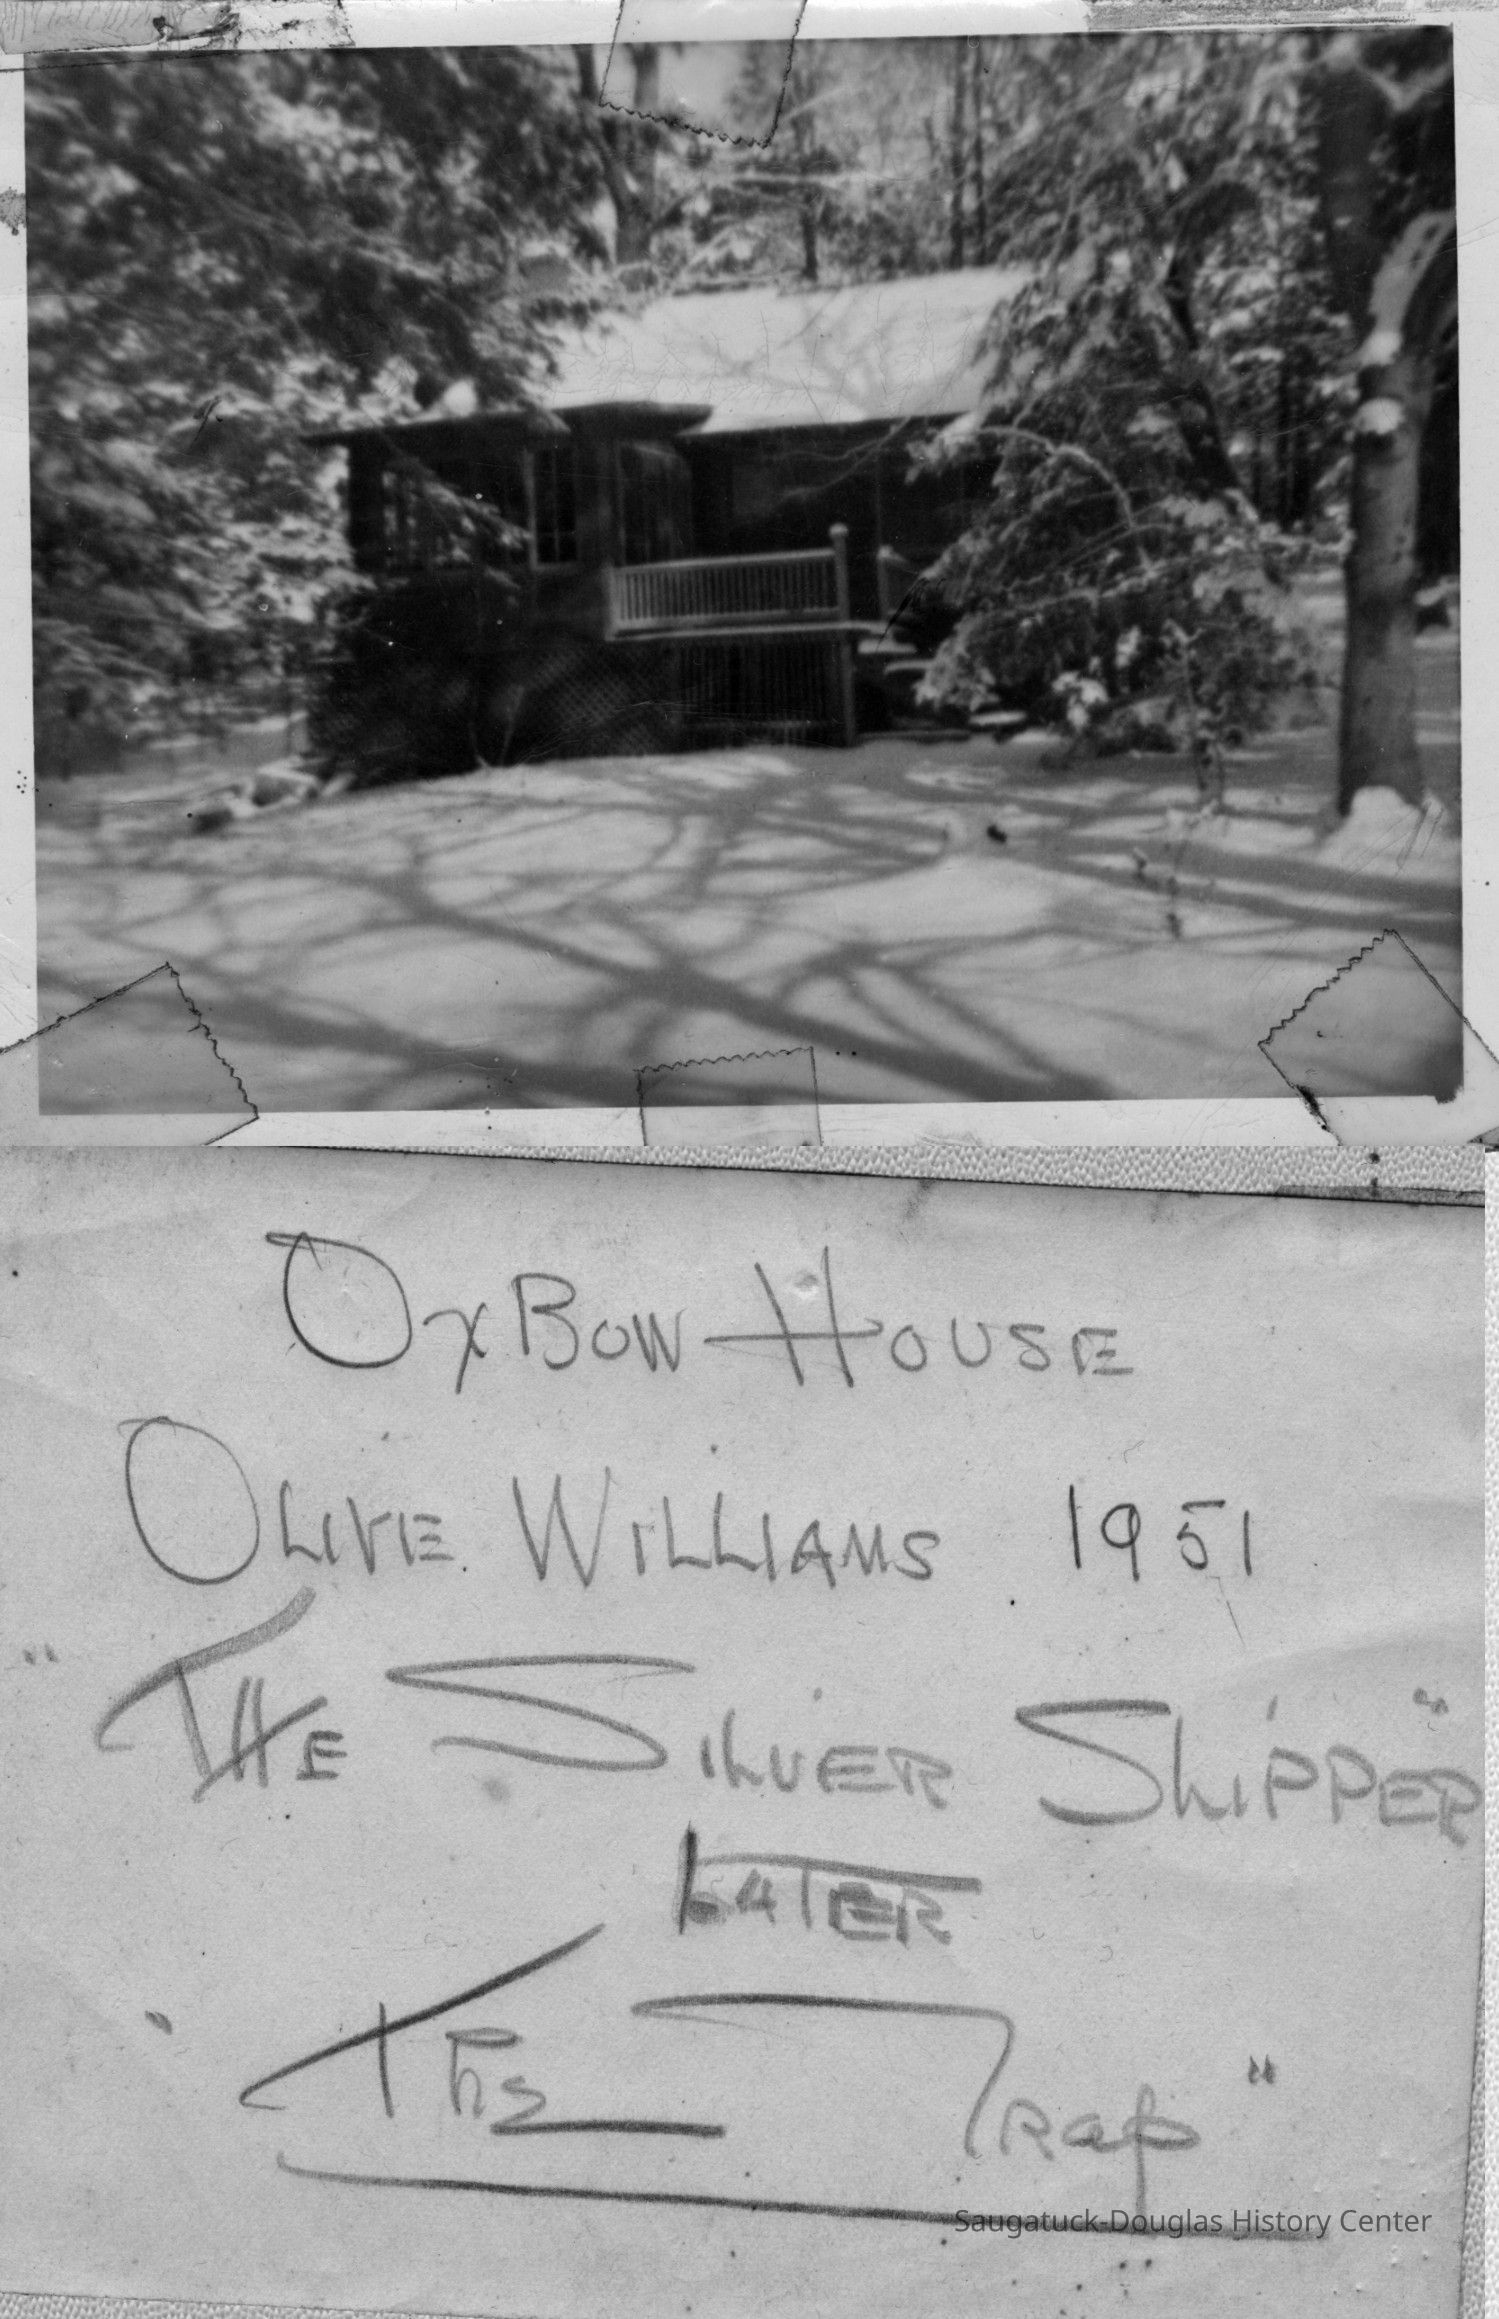 OxBow House
Olive Williams 1951
"The Silver Slipper"
Later
"The Trap"
Saugatuck-Douglas History Center